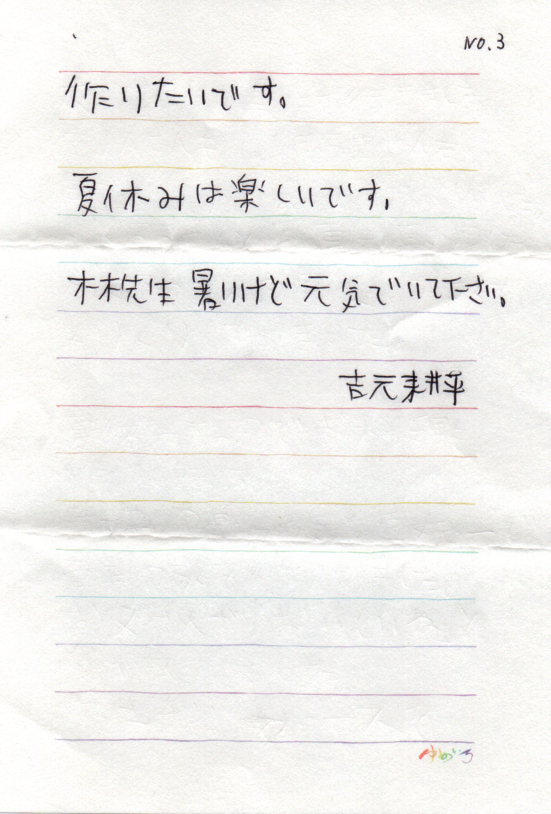 NO.3
作りたいです。
夏休みは楽しいです。
林先生 暑いけど 元気でいて下さい。
吉元耕平
ゆめいろ